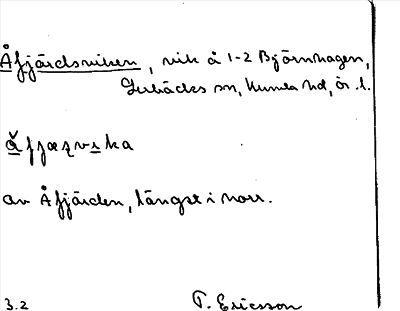 Åfjärdsviken, vik å 1-2 Björnhagen,
Lerbäcks sn, Kumla hd, ör. l.
åfjæqvɪka
av Åfjärden, längst i norr.
3.2 T. Ericsson